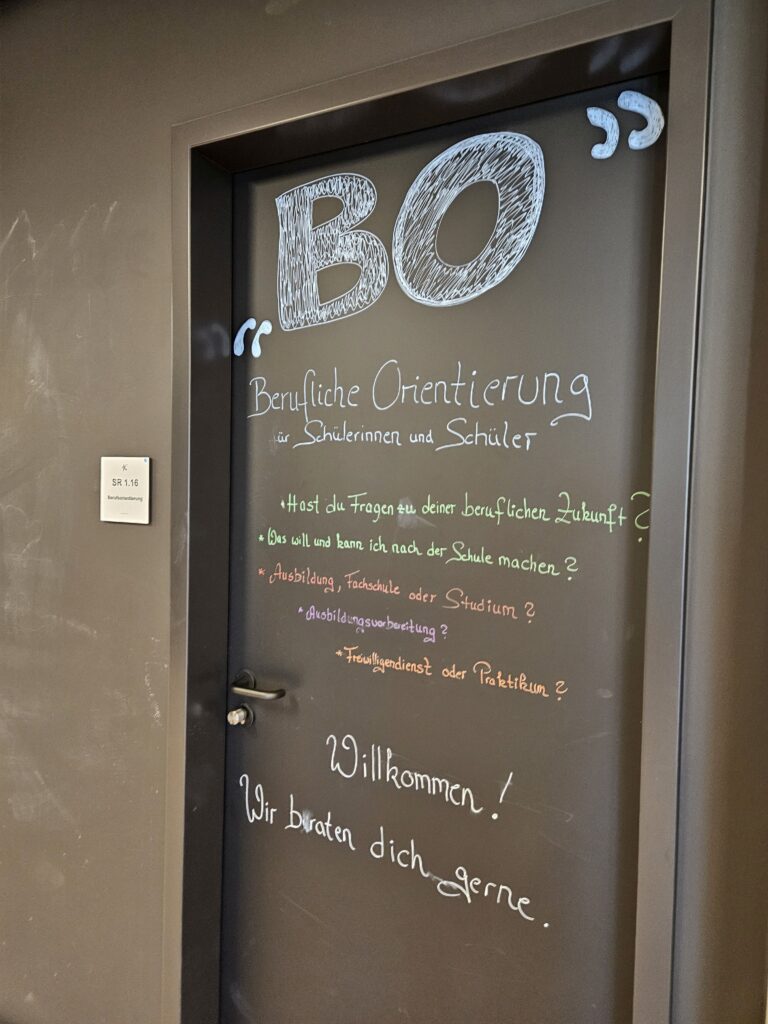 „BO”
Berufliche Orientierung
ür Schülerinnen und Schüler
*Hast du Fragen zu deiner beruflichen Zukunft?
*Was will und kann ich nach der Schule machen?
*Ausbildung, Fachschule oder Studium?
*Ausbildungsvorbereitung?
*Freiwilligendienst oder Praktikum?
Willkommen!
Wir beraten dich gerne.
SR 1.16
Berufsorientierung